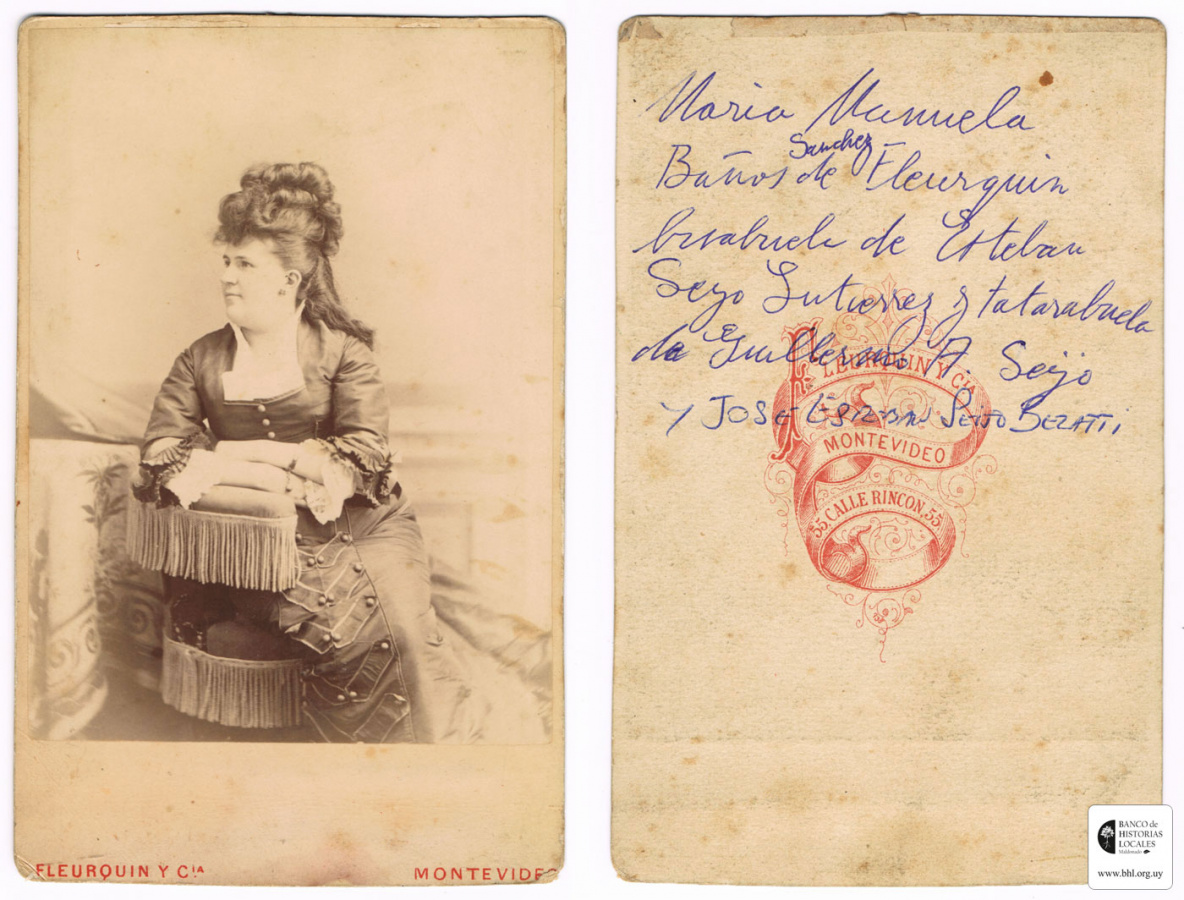 FLEURQUIN Y Cᴵᴬ
MONTEVIDE
Maria Manuela
Sanchez
Baños de Fleurquin
bisabuela de Esteban
Seijo Gutierrez y tatarabuela
de Guillermo A. Seijo
Y JOSE ESTEBAN SEIJO BEZATTI
FLEURQUIN Y Cᴵᴬ
MONTEVIDEO
55, CALLE RINCON, 55
BANCO de
HISTORIAS
LOCALES
Maldonado
www.bhl.org.uy